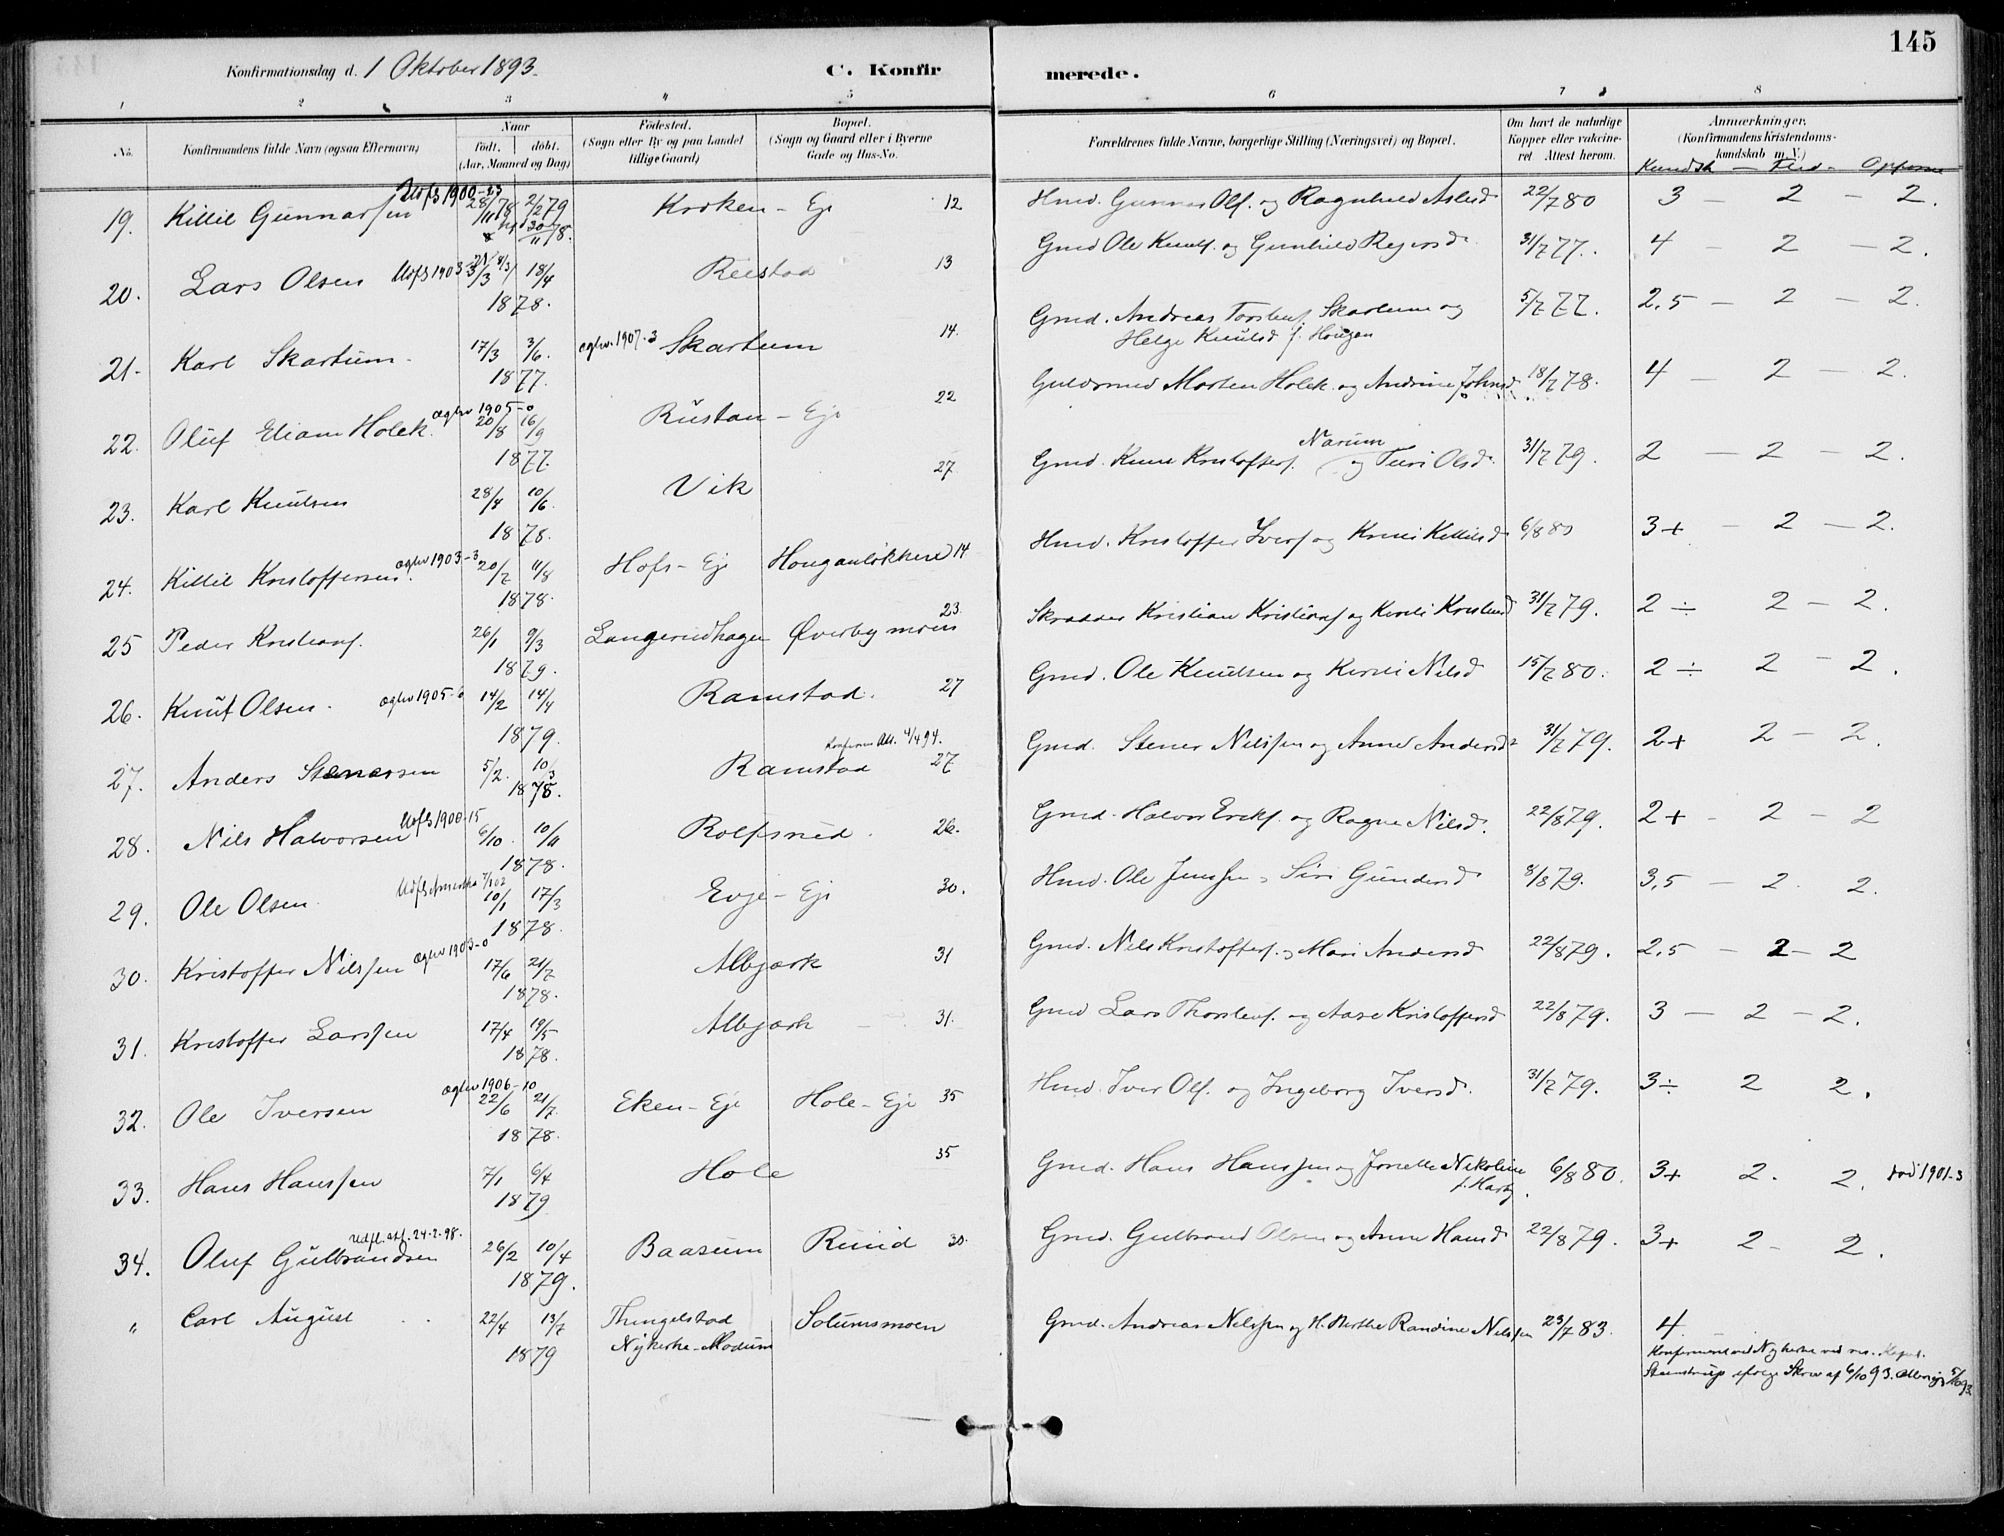 145
Konfirmationsdag d. 1 Oktober 1893.
C. Konfirmerede.
1 2 3 4 5 6 7 8
No.
Konfirmandens fulde Navn (ogsaa Efternavn)
Naar
født. døbt.
(Aar, Maaned og Dag)
Fødested.
(Sogn eller By og paa Landet tillige Gaard)
Bopæl.
(Sogn og Gaard eller i Byerne Gade og Hus-No.
Forældrenes fulde Navne, borgerlige Stilling (Næringsvei) og Bopæl.
Om havt de naturlige Kopper eller vakcineret Attest herom.
Anmærkninger.
(Konfirmandens Kristendomskundskab m. V.)
Kundsk — Flid -
19. Killil Gunnarsen 2/2 79 Kroken - Eje 12 Hmd. Gunnar Ols. og Ragnhild Aslesd 22/7 80 3 — 2 — 2.
20. Lars Olsen 18/4 1878. 13 Gmd Ole Knuts. og Gunhild 31/7 77. 4 — 2 — 2.
21. Karl Skartum 17/3 3/6. 1877. oghv. 1907-3 Skartum 14. Gmd. Andreas Torstens. Skartum og
Helge Knutsd f. Hougen 5/7 77. 2,5 — 2 — 2.
22. Oluf Eliam Holck. oghv 1905-0 20/8 16/9 1877. Rustan - Eje 22 Morten Holck og Andrine Johnsd. 18/7 78. 4 — 2 — 2.
23. Karl Knutsen 28/4 10/6. 1878. Vik 27. Gmd. Knut Kristoffers. Narum og Turi Olsd. 31/7 79. 2 — 2 — 2.
24. Killil Kristoffersen. oghv 1903-3 20/7 11/8 1878. Hofs - Eje Houganløkken 14 Hmd. Kristoffer Ivers og Killilsd 6/8 80 3+ — 2 — 2.
25 Peder Kristians. 26/1 9/3 1879. Langerudhagen Øverby moen 23. Skrædder Kristian Kristians og Kristensd 31/7 79. 2 ÷ 2 — 2.
26. Knut Olsen. oghv 1905-0 14/2 14/4 1879. Ramstad. 27 Gmd. Ole Knutsen og Kirsti Nilsd 15/7 80. 2 ÷ 2 — 2.
27. Anders Stenersen 5/2. 10/3 1878. Ramstad 27 Gmd. Stener Nilssen og Anne Andersd 31/7 79. 2+ 2 — 2.
28. Nils Halvorsen Udfl 1900-15 6/10. 10/11 1878. Rolfsrud. 26. Gmd. Halvor Eriks. og Ragne Nilsd. 22/8 79. 2+ - 2 — 2
29. Ole Olsen. 10/1 17/3 1878. Evje - Eje 30. Hmd. Ole Jenssen Siri Gundersd 8/8 79. 3,5 — 2. 2.
30. Kristoffer Nilssen oghv 1903-0 17/6 21/7 1878. Albjærk 31 Gmd. Nils Kristoffers. Mari Andersd 22/8 79. 2,5 — 2 — 2
31. Kristoffer Larssen 17/4 19/5 1878. Albjærk 31. Gmd Lars Thorstens. og Aase Kristoffersd 22/8 79. 3 — 2 — 2.
32. Ole Iversen oghv 1906-10 22/6 21/7. 1878. Eken - Eje Hole - Eje 35 Hmd. Iver Ols. og Ingeborg Iversd. 31/7 79. 3÷ 2 2.
33. Hans Hanssen 7/1 6/4 1879 Hole 35 Gmd. Hans Hanssen og Jonette Nikoline 6/8 80. 3+ 2. 2. død 1901-3
34. Oluf Gulbrandsen Udfl. att. 24-2-98. 26/2 10/4 1879. Baasum Ruud 30. Gmd. Gulbrand Olsen og Anne Hansd 22/8 79. 3+ 2 - 2.
" Carl August 22/4 13/7 1879 Thingelstad
Nykirke - Modum Solumsmoen Gmd. Andreas Nilssen og H. Berthe Randine Nilssen 23/7 83. 4.
Konfirmeret ved Nykirke ved res. Kapel.
Stenstrup ifølge Skriv af 6/10 93.